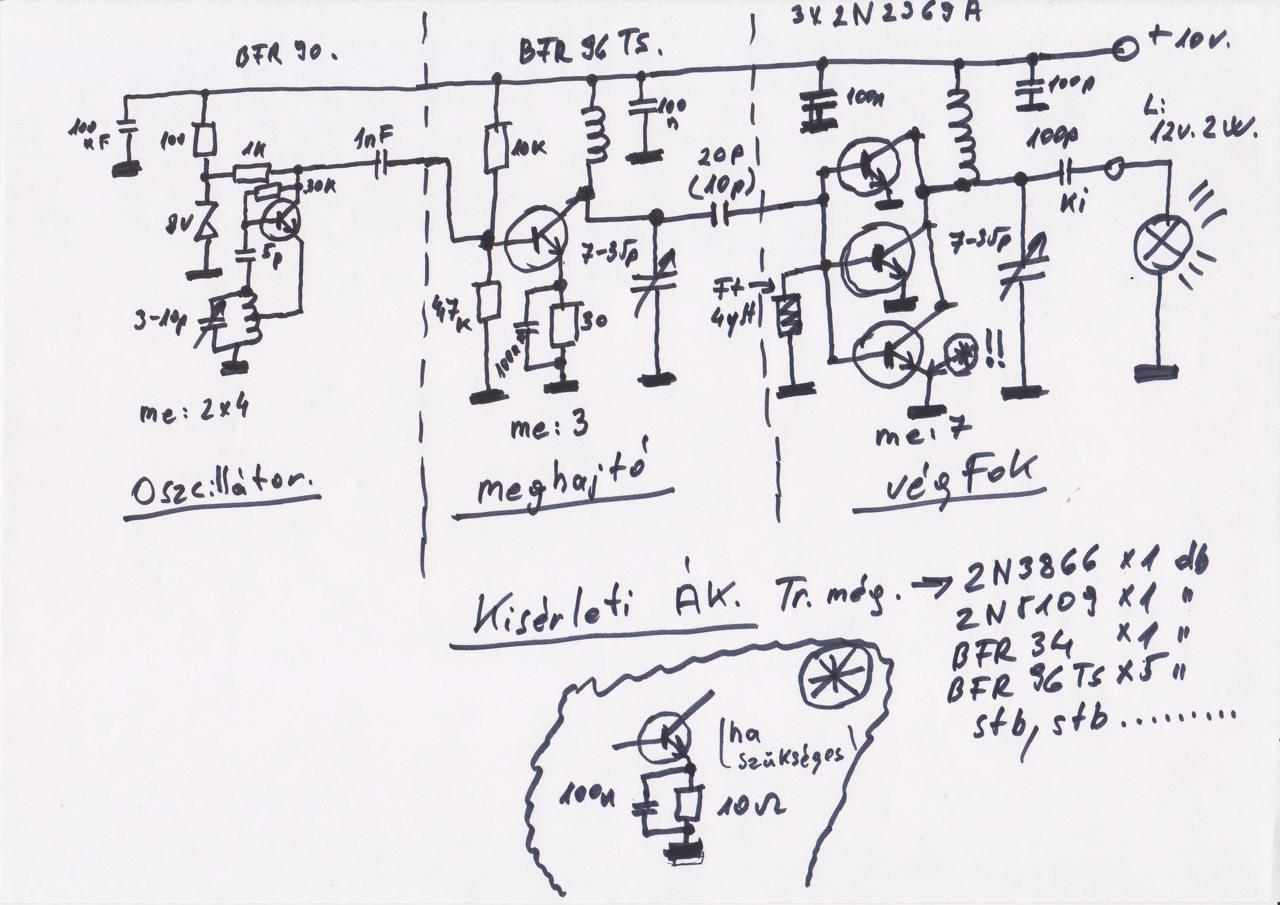 BFR 90.
BFR 96 TS.
3x 2N2369A
+ 10v.
100
nF
100
1K
30K
8V
5p
3-10p
1nF
10K
100
n
4,7
K
100n
30
7-35p
20p
(10p)
100p
Ft
4µH
7-35p
100p
100p
Ki
Li:
12v. 2W.
!!
me: 2x4
me: 3
me: 7
Oszcillátor.
meghajtó
végFok
Kisérleti ÁK. Tr. még. → 2N3866 x1 db
2N5109 x1 "
BFR 34 x1 "
BFR 96 TS x5 "
stb, stb .........
(ha
szükséges)
100n
10Ω